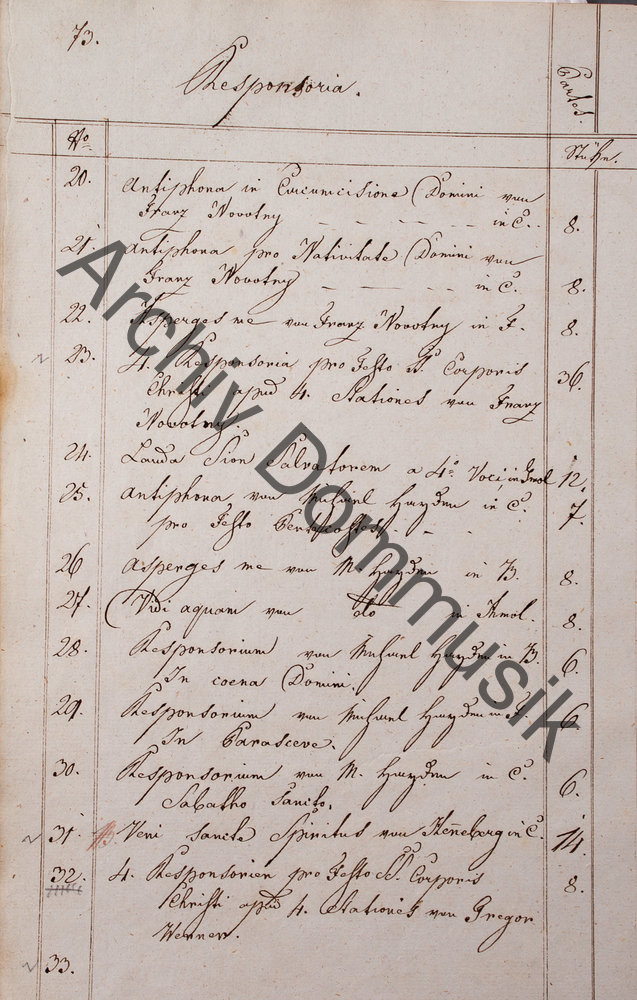 73.
Responsoria.
Partes.
No
Stücke.
20. Antiphona in Circumcisione Domini von
Franz Novotny in C. 8.
21. Antiphona pro Nativitate Domini von
Franz Novotny in C. 8.
22. Asperges me von Franz Novotny in F. 8.
23. 4. Responsoria pro Festo SS. Corporis 36.
Christi apud 4. Stationes von Franz
Novotny.
24. Lauda Sion Salvatorem a 4o Voci, in Dmol 12.
25. Antiphona von Michael Hayden in C. 7.
pro Festo Pentecostes.
26 Asperges me von M. Hayden in B. 8.
27. Vidi aquam von do in Amol. 8.
28. Responsorium von Michael Hayden in B. 6.
In coena Domini.
29. Responsorium von Michael Hayden in 6
In Parasceve.
30. Responsorium von M. Hayden in C. 6.
Sabatho Sancto.
31. Veni sancte Spiritus von Henneberg in C. 14.
32. 4. Responsorien pro Festo SS. Corporis 8.
Christi apud 4. Stationes von Gregor
Werner.
33.
Archiv Dommusik